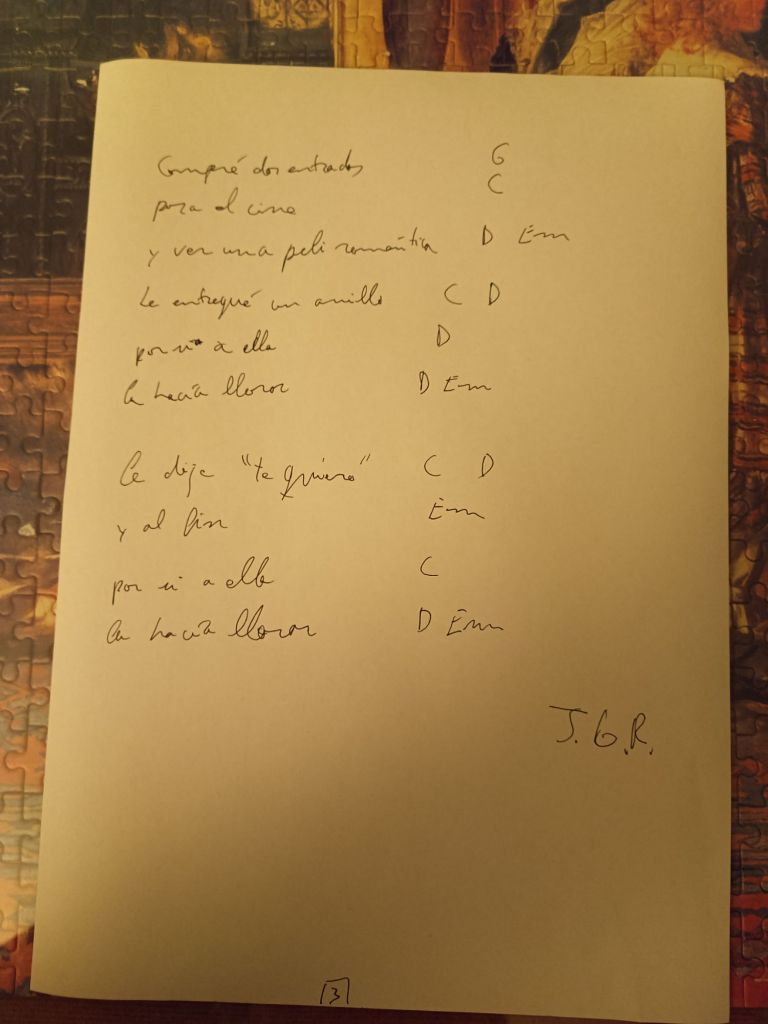 Compré dos entradas G
para el cine C
y ver una peli romántica D Em
Le entregué un anillo C D
por si a ella D
la hacía llorar D Em
Le dije "te quiero" C D
y al fin Em
por si a ella C
la hacía llorar D Em
J.G.R.
3